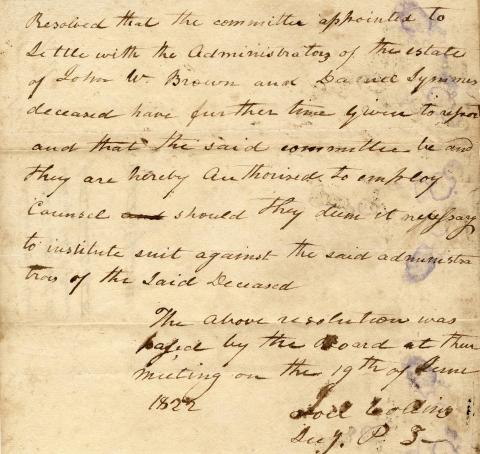 Resolved that the committee appointed to
Settle with the Administrators of the estate
of John W Brown and Daniel Symmes
deceased have further time given to report
and that the said committee be and
they are hereby Authorised to employ
Counsel and should they dum it necessary
to institute suit against the said administra
tors of the Said Deceased
The above resolution was
passed by the Board at their
meeting on the 19th of June
1822
Joel Collins
Secy. P. T